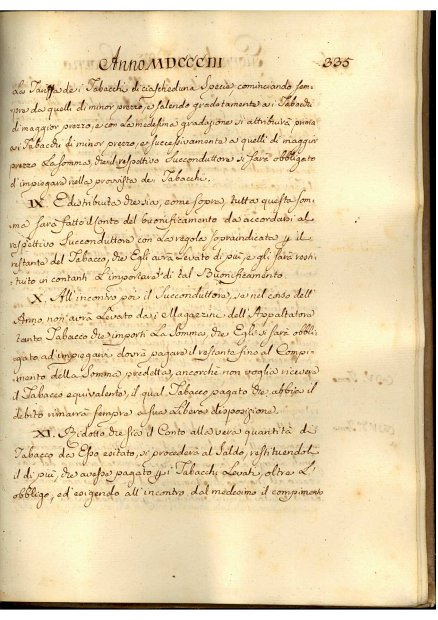 Anno MDCCCIII 335
La Tariffa dei Tabacchi di ciascheduna Specie cominciando sem-
pre da quelli di minor prezzo, e salendo gradatamente ai Tabacchi
di maggior prezzo, e con la medesima gradazione si attribuirà prima
ai Tabacchi di minor prezzo, e successivamente a quelli di maggior
prezzo La somma, che il respettivo Succonduttore si sarà obbligato
d'impiegare nella provvista dei Tabacchi.
IX. E distribuita che sia, come sopra, tutta questa Som-
ma sarà fatto il Conto del buonificamento da accordarsi al
respettivo Succonduttore con La regola sopraindicata p il
restante del Tabacco, che Egli avrà Levato di più, e gli sarà resti-
tuito in contanti L'importare di tal Buonificamento.
X. All'incontro poi il Succonduttore, se nel corso dell'
Anno, non avrà Levato dai Magazzini dell'Appaltatore
tanto Tabacco che importi La Somma, che Egli si sarà obbli-
gato ad impiegarvi dovrà pagare il restante fino al Compi-
mento della Somma predetta, ancorchè non voglia ricevere
il Tabacco equivalente, il qual Tabacco pagato che abbia il
debito rimarrà sempre a sua Libera disposizione.
XI. Ridotto che sia il Conto alla vera quantità di
Tabacco da Esso esitato, si procederà al Saldo, restituendoli
il di più, che avesse pagato p i Tabacchi Levati, oltre L'
obbligo, ed esigendo all'incontro dal medesimo il compimento